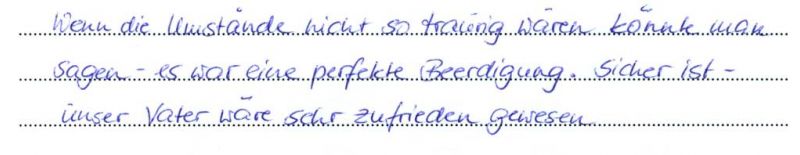 Wenn die Umstände nicht so traurig wären könnte man
sagen - es war eine perfekte Beerdigung. Sicher ist -
unser Vater wäre sehr zufrieden gewesen